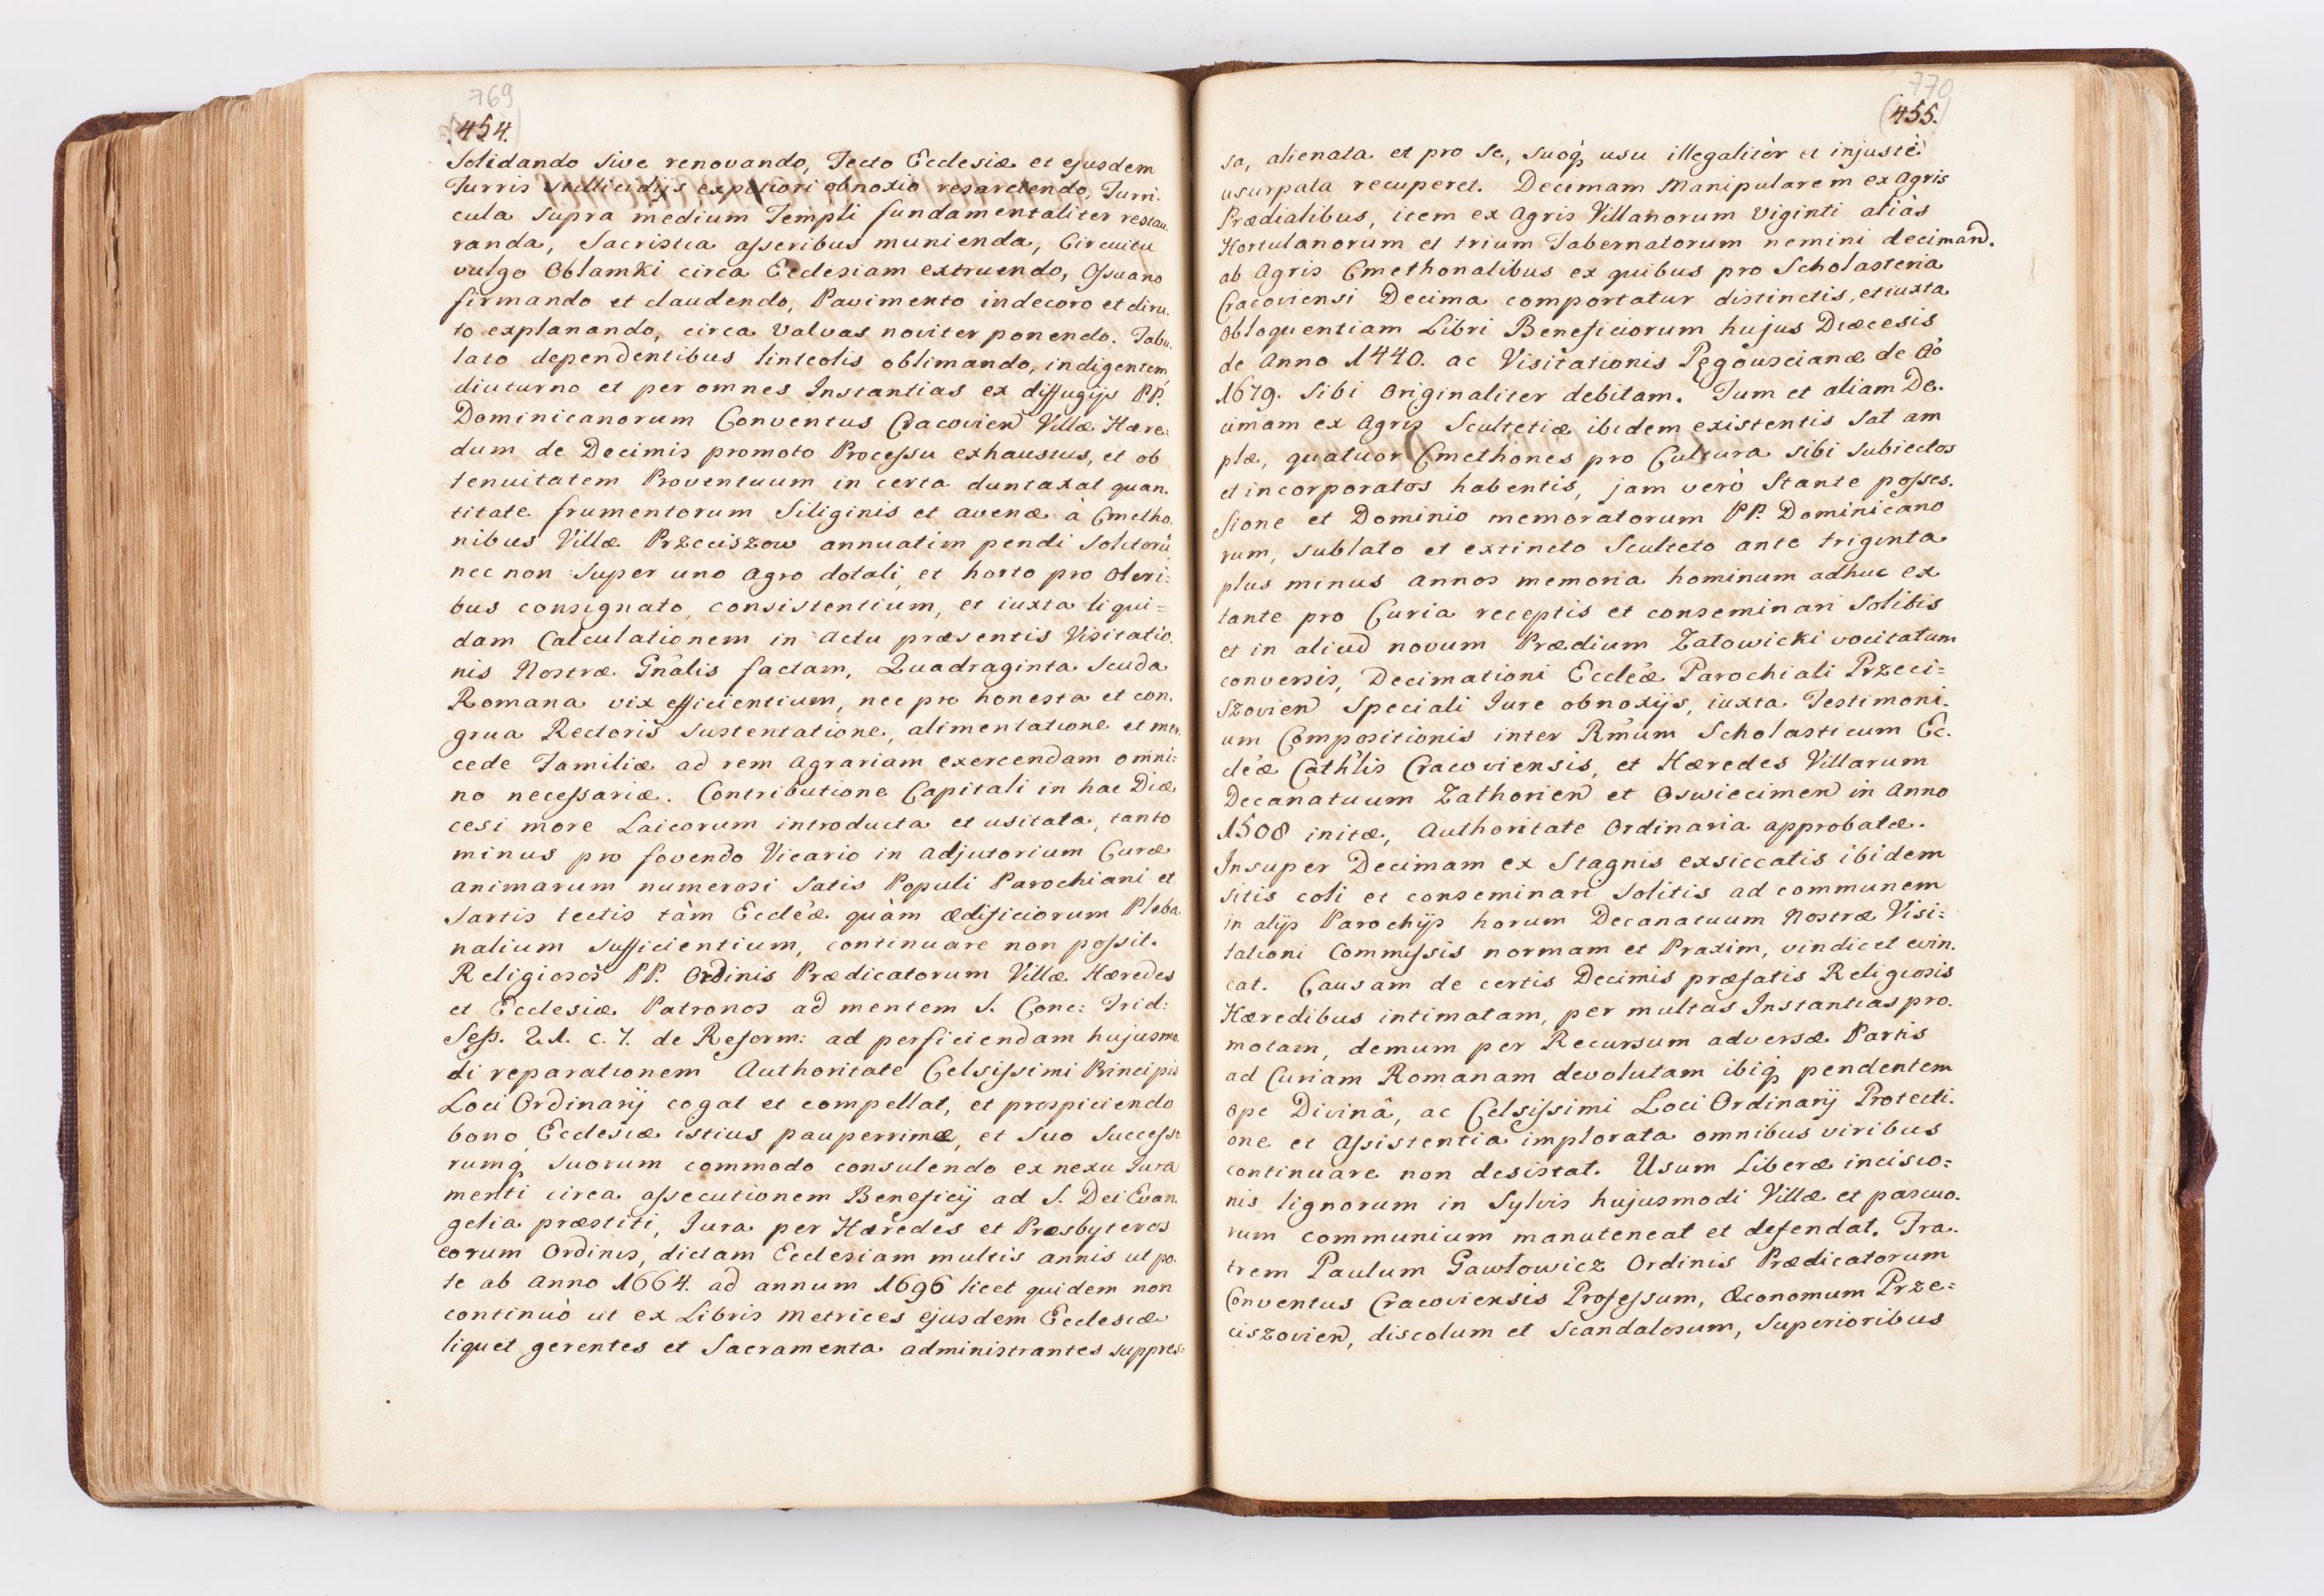 769
454.
Solidando sive renovando, Tecto Ecclesiæ et ejusdem
Turris stillicidijs expositiori obnoxio resarciendo, Turri-
cula supra medium Templi fundamentaliter restau-
randa, Sacristia asseribus munienda, Circuitu
vulgo Oblamki circa Ecclesiam extruendo, Ossuario
firmando et claudendo, Pavimento indecoro et diru-
to explanando, circa Valvas noviter ponendo. Tabu-
lato dependentibus linteolis oblimando, indigentem,
diuturno et per omnes Instantias ex diffugijs PP.
Dominicanorum Conventus Cracovien Villæ Hære:
dum de Decimis promoto Processu exhaustus, et ob
tenuitatem Proventuum in certa duntaxat quan-
titate frumentorum Siliginis et avenæ à Cmetho-
nibus Villæ Przeciszow annuatim pendi Solitorũ
nec non Super uno agro dotali, et horto pro Oleri:
bus consignato, consistentium, et iuxta liqui=
dam Calculationem in actu præsentis Visitatio-
nis Nostræ Gńalis factam, Quadraginta Scuda
Romana vix efficientium, nec pro honesta et con-
grua Rectoris sustentatione, alimentatione et mer-
cede Familiæ ad rem agrariam exercendam omni:
no necessariæ. Contributione Capitali in hac Diæ
cesi more Laicorum introducta et usitata, tanto
minus pro fovendo Vicario in adjutorium Curæ
animarum numerosi satis Populi Parochiani et
Sartis tectis tàm Eccléæ quàm ædificiorum Pleba-
nalium sufficientium, continuare non possit.
Religiosos PP. Ordinis Prædicatorum Villæ Hæredes
et Ecclesiæ Patronos ad mentem S. Conc: Trid:
Sess. 21. c. 7. de Reform: ad perficiendam hujusmo-
di reparationem Authoritate Celsissimi Principis
Loci Ordinarij cogat et compellat, et prospiciendo
bono Ecclesiæ istius pauperrimæ, et suo Successo
rumq́ suorum commodo consulendo ex nexu Jura
menti circa assecutionem Beneficij ad S. Dei Evan-
gelia præstiti, Jura per Hæredes et Præsbyteros
eorum Ordinis, dictam Ecclesiam multis annis ut po-
te ab anno 1664. ad annum 1696 licet quidem non
continuò ut ex Libris Metrices ejusdem Ecclesiæ
liquet gerentes et Sacramenta administrantes suppres=
770
(455.)
sa, alienata et pro se, suoq́ usu illegalitèr et injustè
usurpata recuperet. Decimam Manipularem ex Agris
Prædialibus, item ex Agris Villanorum Viginti aliàs
Hortulanorum et trium Tabernatorum nemini decimand.
ab Agris Cmethonalibus ex quibus pro Scholasteria
Cracoviensi Decima comportatur distinctis, et iuxta
Obloquentiam Libri Beneficiorum hujus Diæcesis
de Anno 1440. ac Visitationis Pęgowscianæ de Aõ
1679. Sibi Originaliter debitam. Tum et aliam De-
cimam ex Agris Scultetiæ ibidem existentis Sat am
plæ, quatuor Cmethones pro Cultura sibi Subiectos
et incorporatos habentis, jam verò Stante posses-
sione et Dominio memoratorum PP. Dominicano
rum, sublato et extincto Sculteto ante triginta
plus minus annos memoria hominum adhuc ex
tante pro Curia receptis et conseminari Solitis
et in aliud novum Prædium Zatowicki vocitatum
conversis, Decimationi Eccléæ Parochiali Przeci=
szovien Speciali Jure obnoxijs, iuxta Testimoni-
um Compositionis inter Rḿum Scholasticum Ec-
cléæ Cathlis Cracoviensis, et Hæredes Villarum
Decanatuum Zathorien et Oswiecimen in Anno
1508 initæ, Authoritate Ordinaria approbatæ.
Insuper Decimam ex Stagnis exsiccatis ibidem
sitis coli et conseminari Solitis ad communem
in alijs Parochijs horum Decanatuum Nostræ Visi=
tationi Commissis normam et Praxim, vindicet evin-
cat. Causam de certis Decimis præfatis Religiosis
Hæredibus intimatam, per multas Instantias pro-
motam, demum per Recursum adversæ Partis
ad Curiam Romanam devolutam ibiq́ pendentem
ope Divinâ, ac Celsissimi Loci Ordinarij Protecti-
one et Assistentia implorata omnibus viribus
continuare non desistat. Usum Liberæ incisio=
nis lignorum in Sylvis hujusmodi Villæ et pascuo-
rum communium manuteneat et defendat. Fra-
trem Paulum Gawłowicz Ordinis Prædicatorum
Conventus Cracoviensis Professum, Œconomum Prze=
ciszovien, discolum et Scandalosum, Superioribus